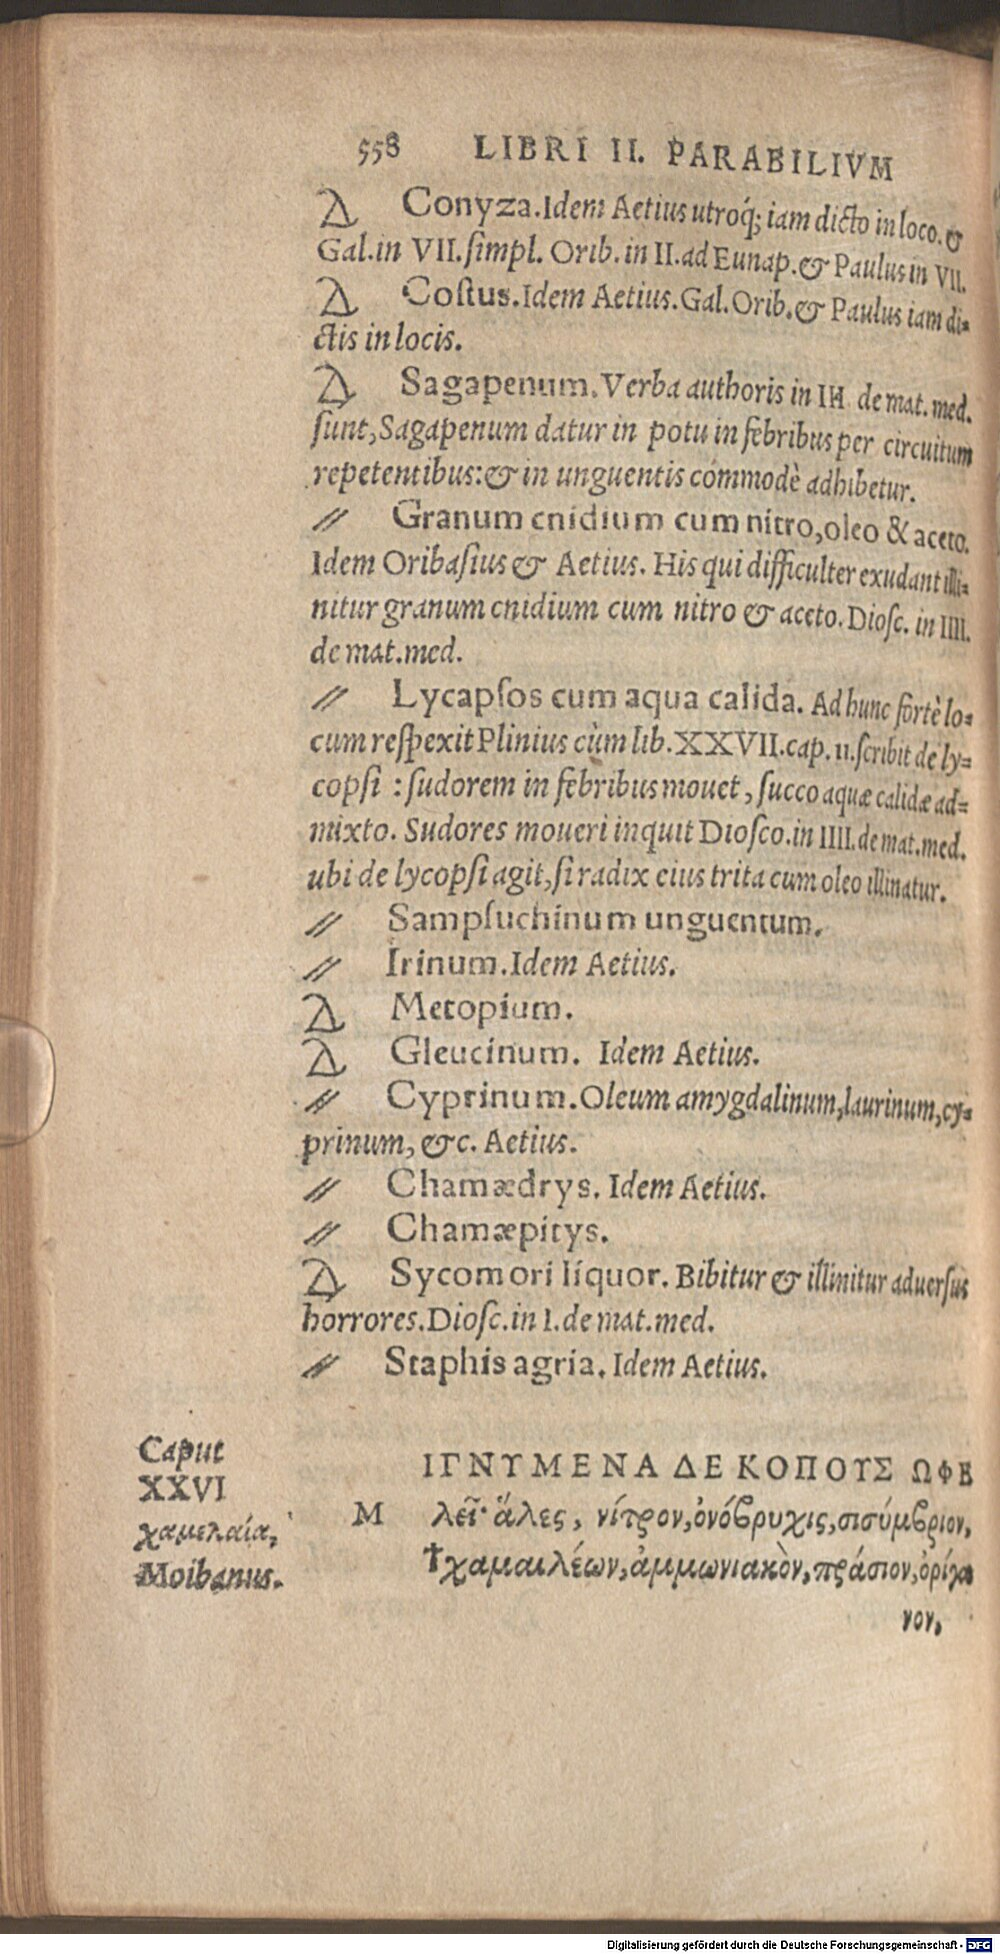 558 LIBRI II. PARABILIVM
Conyza. Idem Aetius utroq́; iam dicto in loco. &
Gal. in VII. ſimpl. Orib. in II. ad Eunap. & Paulus in VII.
Coſtus. Idem Aetius. Gal. Orib. & Paulus iam di=
ctis in locis.
Sagapenum. Verba authoris in III de mat. med.
ſunt, Sagapenum datur in potu in febribus per circuitum
repetentibus: & in unguentis commodè adhibetur.
// Granum cnidium cum nitro, oleo & aceto.
Idem Oribaſius & Aetius. His qui difficulter exudant illi=
nitur granum cnidium cum nitro & aceto. Dioſc. in IIII.
de mat. med.
// Lycapſos cum aqua calida. Ad hunc fortè lo=
cum reſpexit Plinius cùm lib. XXVII. cap. 11. ſcribit de ly=
copſi : ſudorem in febribus mouet, ſucco aquæ calidæ ad=
mixto. Sudores moueri inquit Dioſco. in IIII. de mat. med.
ubi de lycopſi agit, ſi radix eius trita cum oleo illinatur.
// Sampſuchinum unguentum.
// Irinum. Idem Aetius.
Metopium.
Gleucinum. Idem Aetius.
// Cyprinum. Oleum amygdalinum, laurinum, cy=
prinum, &c. Aetius.
// Chamædrys. Idem Aetius.
// Chamæpitys.
Sycomori liquor. Bibitur & illinitur aduerſus
horrores. Dioſc. in I. de mat. med.
// Staphis agria. Idem Aetius.
Caput
XXVI
χαμελαία,
Moibanus.
ΙΓΝΥΜΕΝΑ ΔΕ ΚΟΠΟΥΣ ΩΦΕ
Μ λεῖ· ἅλες, νίτρον, ὀνόβρυχις, σισύμβριον,
†χαμαιλέων, ἀμμωνιακὸν, πράσιον, ὀρίγα
νον,
Digitalisierung gefördert durch die Deutsche Forschungsgemeinschaft - DFG